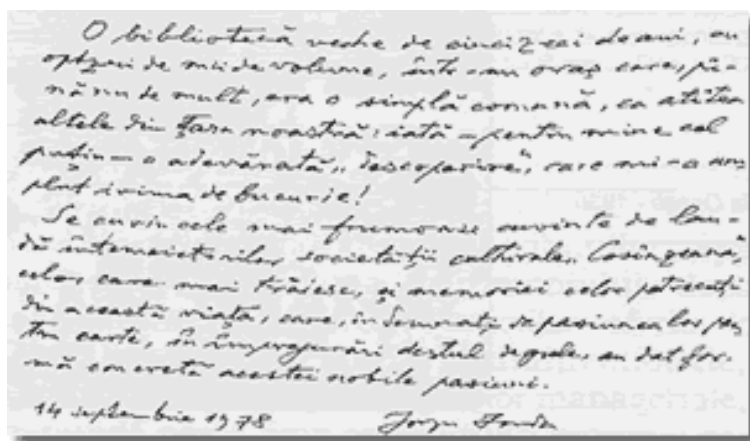 O bibliotecă veche de cincizeci de ani, cu
optzeci de mii de volume, într-un oraș care, pî-
nă nu de mult, era o simplă comună, ca atîtea
altele din țara noastră: iată – pentru mine cel
puțin – o adevărată „descoperire”, care mi-a um-
plut inima de bucurie!
Se cuvin cele mai frumoase cuvinte de lau-
dă întemeietorilor societății culturale „Casingeana”,
celor care mai trăiesc, și memoriei celor petrecuți
din această viață, care, îndemnați de pasiunea lor pen
tru carte, în împrejurări destul de grele, au dat for-
mă concretă acestei nobile pasiuni.
14 septembrie 1978